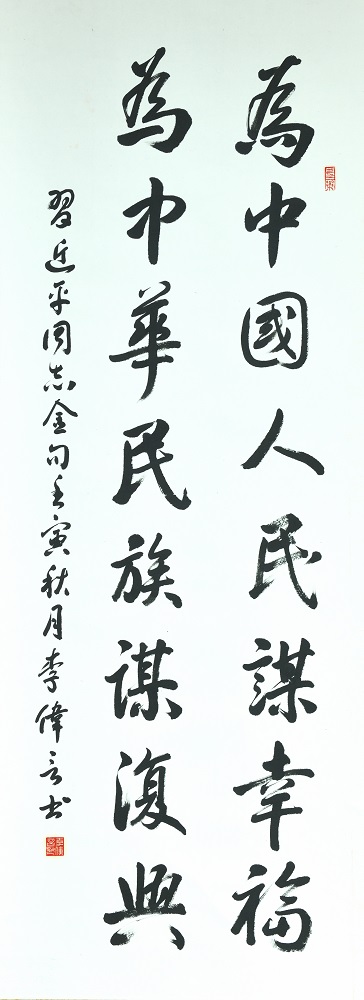 為中國人民謀幸福
為中華民族謀復興
習近平同志金句壬寅秋月李偉言书